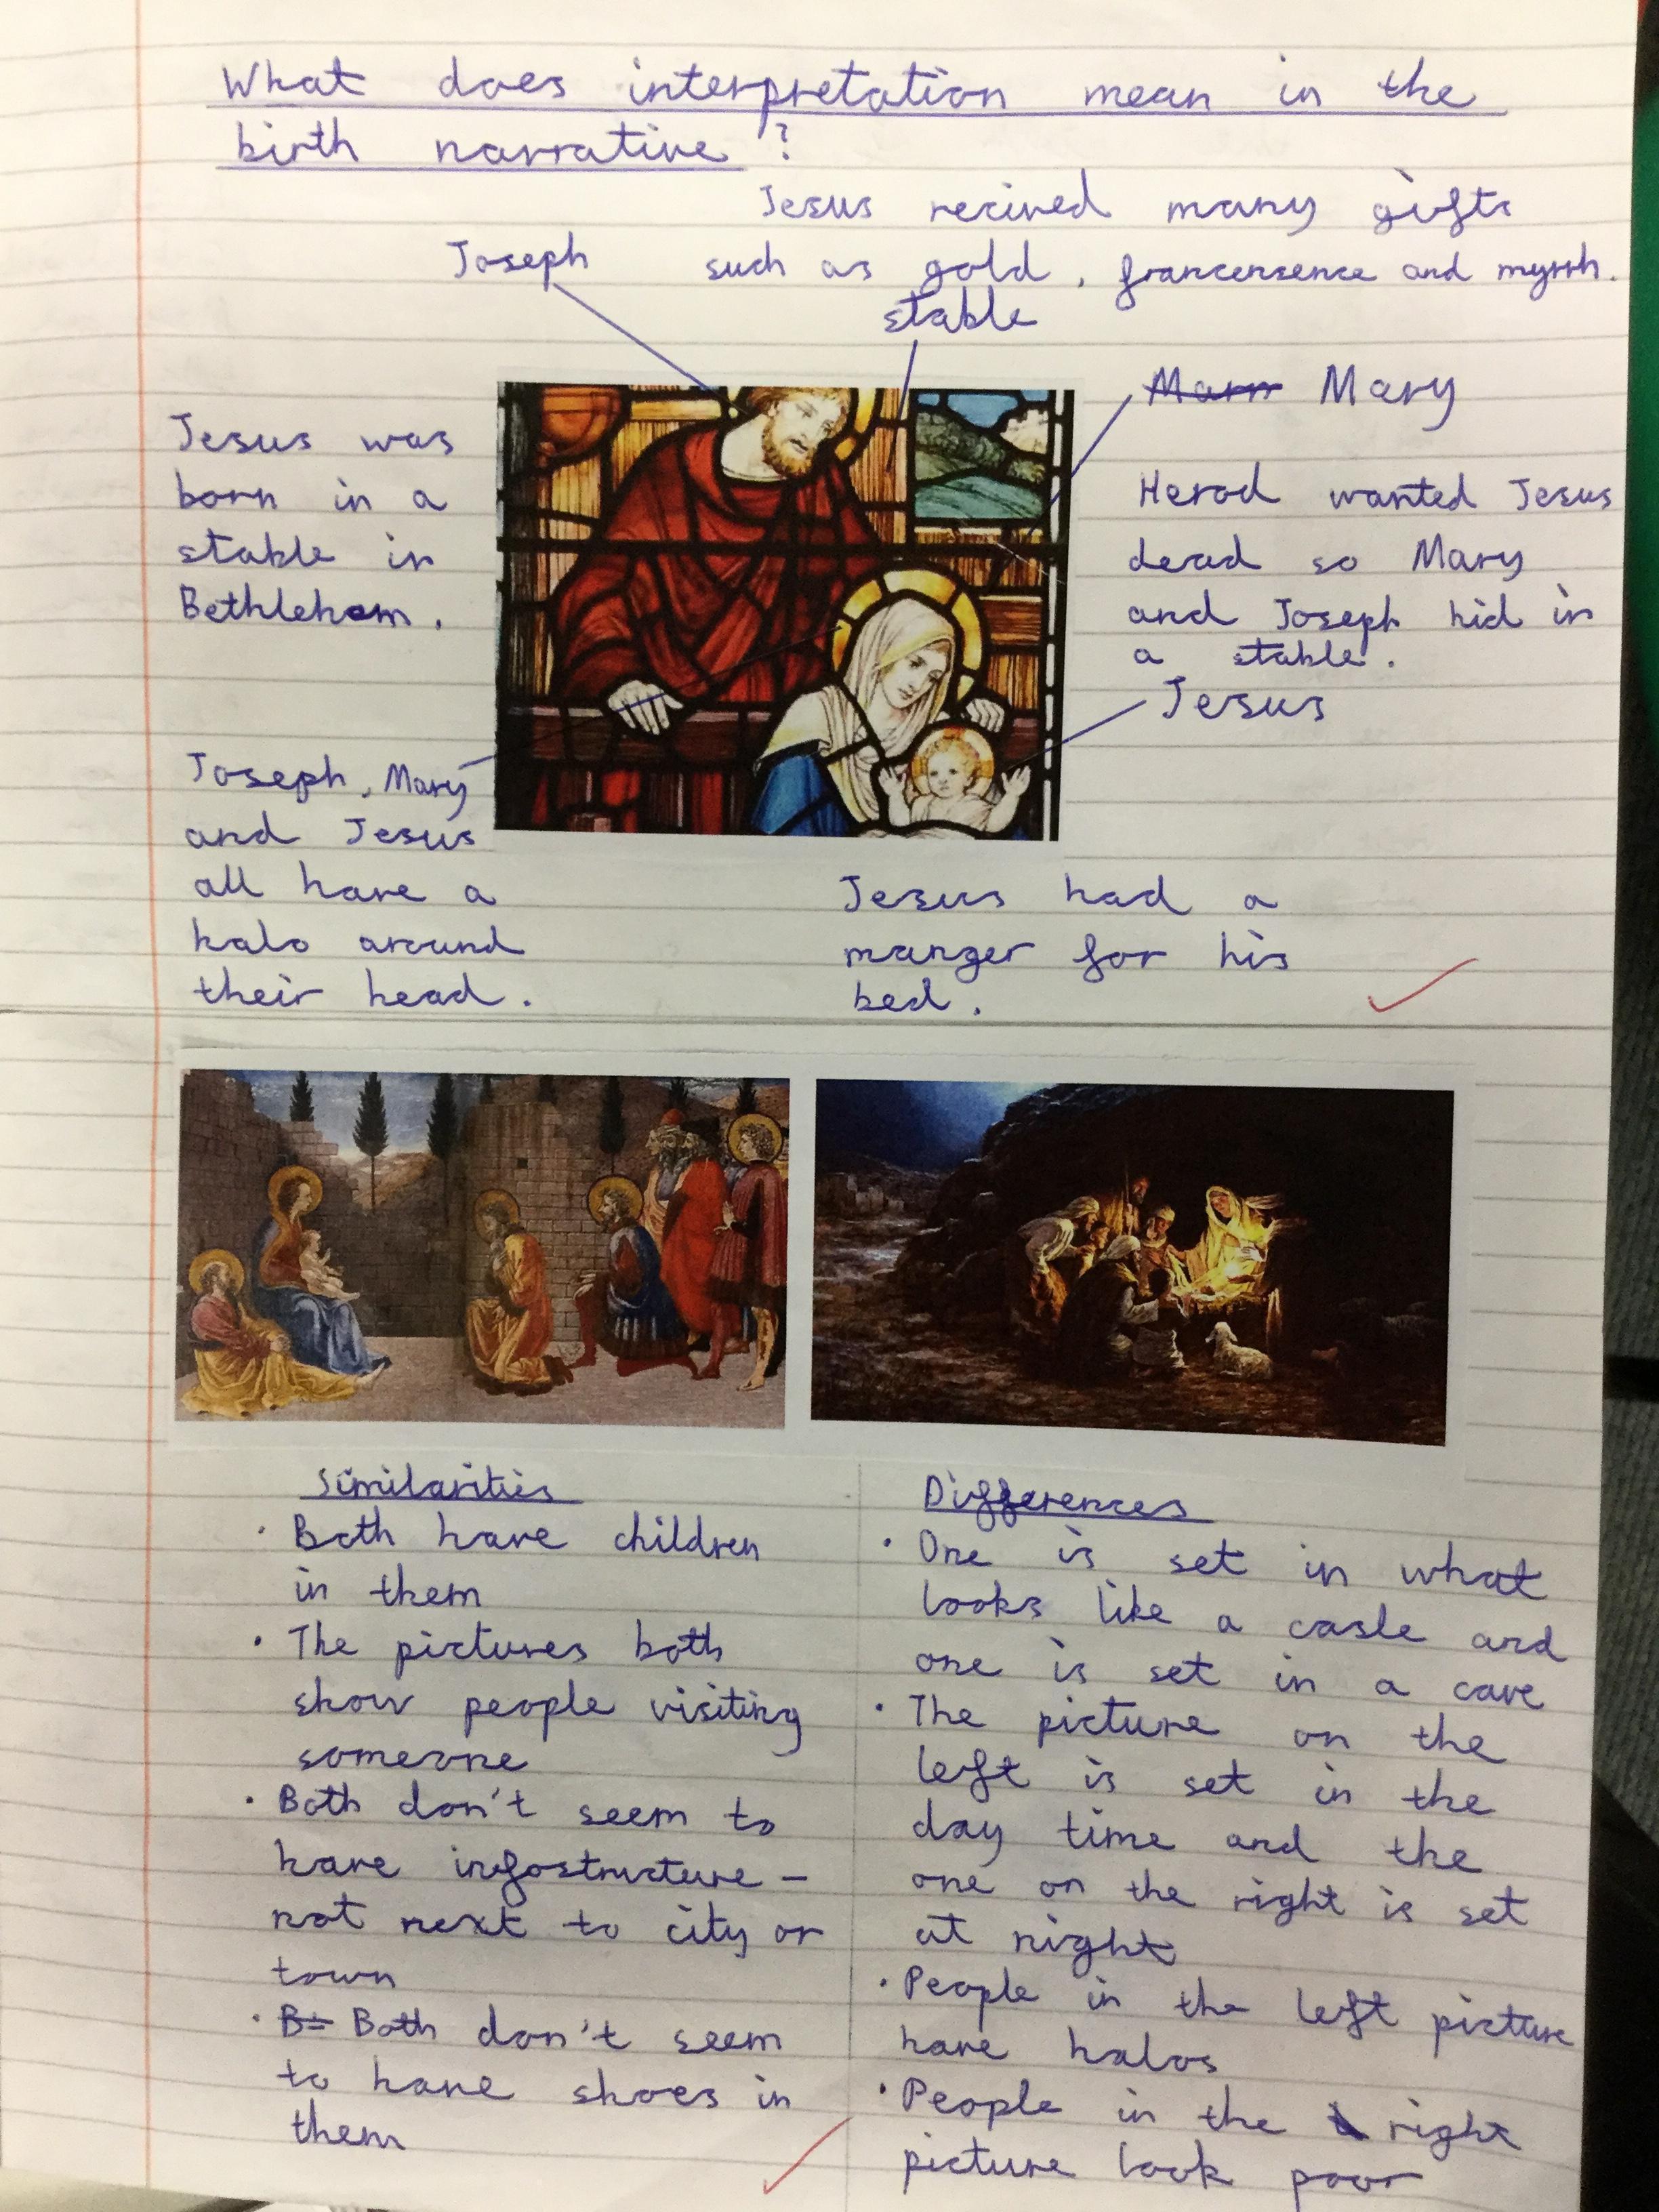 What does interpretation mean in the
birth narrative?
Jesus recived many gifts
such as gold, francensence and myrrh.
Joseph
stable
Marr Mary
Jesus was
born in a
stable in
Bethlehem.
Herod wanted Jesus
dead so Mary
and Joseph hid in
a stable.
Jesus
Joseph, Mary
and Jesus
all have a
halo around
their head.
Jesus had a
manger for his
bed.
Similarities
• Both have children
in them
• The pictures both
show people visiting
someone
• Both don't seem to
have infostructure -
not next to city or
town
• B= Both don't seem
to have shoes in
them
Differences
• One is set in what
looks like a casle and
one is set in a cave
• The picture on the
left is set in the
day time and the
one on the right is set
at night
• People in the left picture
have halos
• People in the right
picture look poor